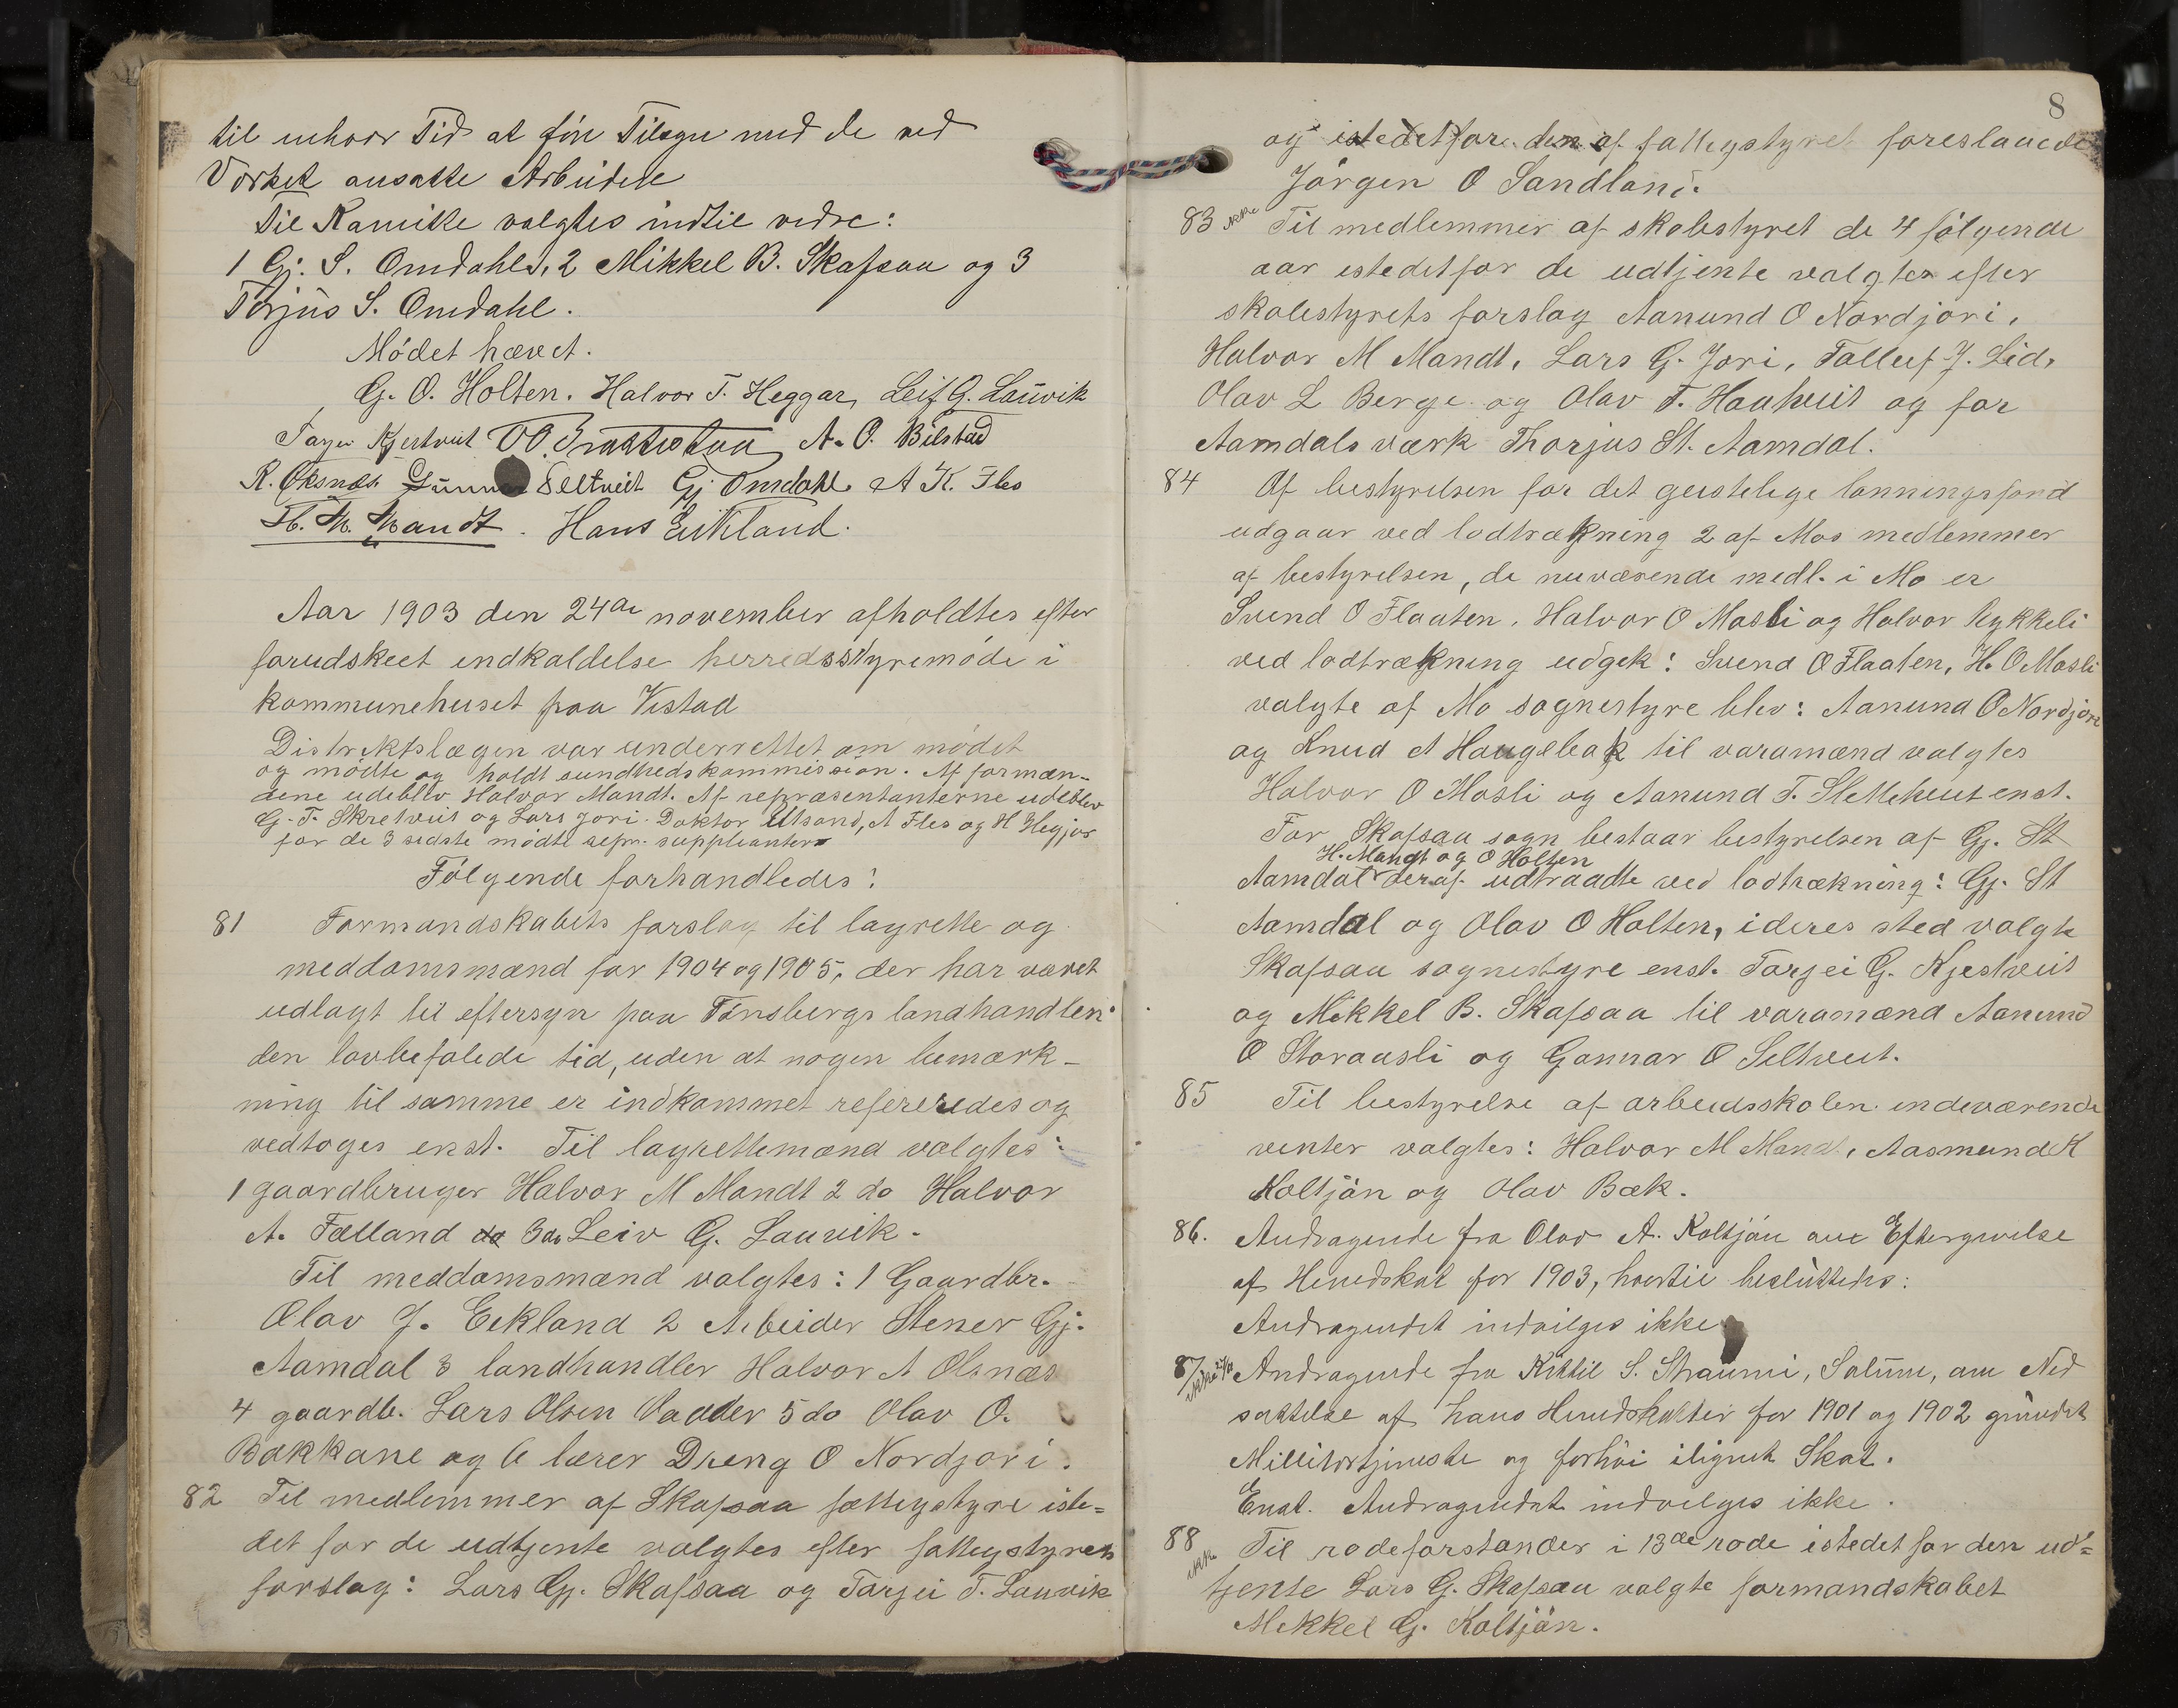 til enhver Tid at före Tilsyn med de ved
Verket ansatte Arbeidere
Til Komite valgtes indtil vedre:
1 Gj. S. Omdahl, 2 Mikkel B. Skafsaa og 3
Torjus S. Omdahl.
Mödet hævet.
G. O. Holten. Halvor T. Heggar, Leif G. Lauvik
Tarjei Kjestveit A. O. Bilstad
R. Oksnes Gunnar Seltveit Gj Omdahl A K. Fles
H. M. Mandt. Hans Eikland.
Aar 1903 den 24de november afholdtes efter
forudskeet indkaldelse herredsstyremöde i
kommunehuset paa Vistad
Distriktslægen var underrettet om mödet
og mödte og holdt sundhedskommission. Af formæn-
dene udeblev Halvor Mandt. Af repræsentanterne udeblev
G. T. Skretveit og Lars Jori. Doktor Utsond, A Fles og H Hegjor
for de 3 sidste mödte repr. suppleanter
Fölgende forhandledes:
81 Formandskabets forslag til lagrette og
meddomsmænd for 1904 og 1905, der har været
udlagt til eftersyn paa Tönsbergs landhandleri
den lovbefalede tid, uden at nogen bemærk-
ning til samme er indkommet refereredes og
vedtoges enst. Til lagrettemænd valgtes:
1 gaardbruger Halvor M Mandt 2 do Halvor
A. Fælland do 3 do Leiv G. Lauvik.
Til meddomsmænd valgtes: 1 Gaardbr.
Olav J. Eekland 2 Arbeider Stener Gj.
Aamdal 3 landhandler Halvor A Olsnæs
4 gaardb. Lars Olsen Vaader 5 do Olav O.
Bakkane og 6 lærer Dreng O Nordjori.
82 Til medlemmer af Skafsaa fattigstyre iste=
det for de udtjente valgtes efter fattigstyrets
forslag: Lars Gj. Skafsaa og Tarjei T. Lauvik
8
og istedetfore den af fattigstyret foreslaaede
Jörgen O Sandland.
83 ikke Til medlemmer af skolestyret de 4 fölgende
aar istedetfor de udtjente valgtes efter
skolestyrets forslag Aanund O Nordjori,
Halvor M Mandt, Lars G. Jori, Tallef J. Lid,
Olav L Berge og Olav T. Haukveit og for
Aamdals værk Thorjus St. Aamdal.
84 Af bestyrelsen for det geistelige lönningsfond
udgaar ved lodtrækning 2 af Mos medlemmer
af bestyrelsen, de nuværende medl. i Mo er
Svend O Flaaten, Halvor O Mosli og Halvor Kykkeli
ved lodtrækning udgik: Svend O Flaaten, H. O Mosli
valgte af Mo sognestyre blev: Aanund O Nordjore
og Knud A Haugebak til varamænd valgtes
Halvor O Mosli og Aanund T. Sletteheut enst.
For Skafsaa sogn bestaar bestyrelsen af Gj. St
H. Mandt og O Holten
Aamdal deraf udtraadte ved lodtrækning: Gj. St
Aamdal og Olav O Holten, i deres sted valgte
Skafsaa sognestyre enst. Tarjei G. Kjestveit
og Mikkel B. Skafsaa til varamænd Aanund
O Storaasli og Gonnar O Seltveit.
85 Til bestyrelse af arbeidsskolen indeværende
vinter valgtes: Halvor M Mandt, Aasmund K
Koltjön og Olav Bæk.
86. Andragende fra Olav A. Koltjön om Eftergivelse
af Herredskat for 1903, hvortil besluttedes:
Andragendet indvilges ikke
87 ikke Andragende fra Kittil S. Straumi, Solum, om Ned
sættelse af hans Herredskatter for 1901 og 1902 grundet
Millitærtjeneste og forhöi ilignet Skat.
Enst. Andragendet indvilges ikke.
88 ikke Til rodeforstander i 13de rode istedet for den ud=
tjente Lars G. Skafsaa valgte formandskabet
Mikkel G. Koltjön.